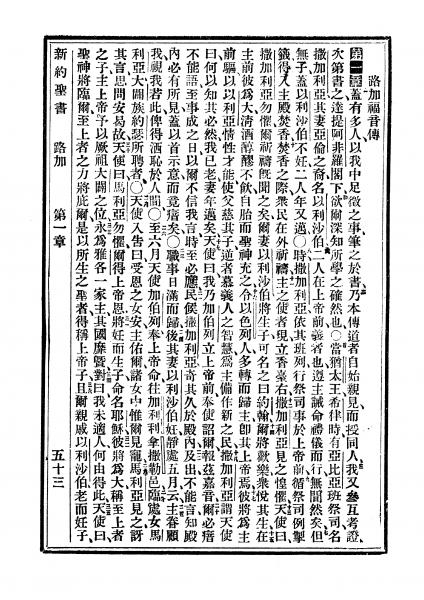 路加福音傳
第一章蓋有多人以我中足徵之事筆之於書乃本傳道者自始親見而授同人我又參互考證、
次第書之達提阿非羅閣下欲爾深知所學之確然也○當猶太王希律時有亞比亞班祭司名
撒加利亞其妻亞倫之裔名以利沙伯二人在上帝前義者也遵主誡命禮儀而行無間然矣但
無子蓋以利沙伯不妊二人年又邁○時撒加利亞依其班列行祭司事於上帝前循祭司例掣
籤得入主殿焚香焚香之際衆民在外祈禱主之使者現立香臺右撒加利亞見之惶懼天使曰、
撒加利亞勿懼爾祈禱旣聞之矣爾妻以利沙伯將生子可名之曰約翰爾將歡樂衆悅其生在
主前彼將爲大清酒醇醪不飲自胎而聖神充之令以色列人多轉而歸主卽其上帝焉彼將爲主
前驅以以利亞情性才能使父慈其子逆者慕義人之智慧爲主備作新之民撒加利亞謂天使
曰何以知其必然我已老妻年邁矣天使曰我乃加伯列立上帝前奉使詔爾報茲嘉音爾必瘖
不能語至事成之日以爾不信我言時至必應民俟撒加利亞奇其久於殿內及出不能言知殿
內必有所見蓋以首示意而竟瘖矣○職事日滿而歸後其妻以利沙伯妊靜處五月云主眷顧
我視我若此俾得洒恥於人間○至六月天使加伯列奉上帝命往加利利拿撒勒邑臨處女馬
利亞大闢族約瑟所聘者○天使入告曰受恩之女安主佑爾諸女中惟爾見寵馬利亞見之訝
其言思問安曷故天使曰馬利亞勿懼爾得上帝恩將妊而生子命名耶穌彼將爲大稱至上者
之子主上帝予以厥祖大闢之位永爲雅各一家主其國靡曁對曰我未適人何由得此天使曰、
聖神將臨爾至上者之力將庇爾是以所生之聖者得稱上帝子且爾親戚以利沙伯老而妊子
新約聖書 路加 第一章 五十三